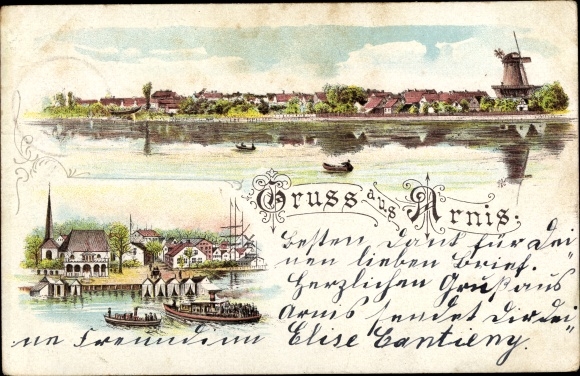 Gruss aus Arnis.
Besten Dank für Dei
nen lieben Brief.
Herzlichen Gruß aus
Arnis sendet Dir Dei
ne Freundinn Elise Cantieny.